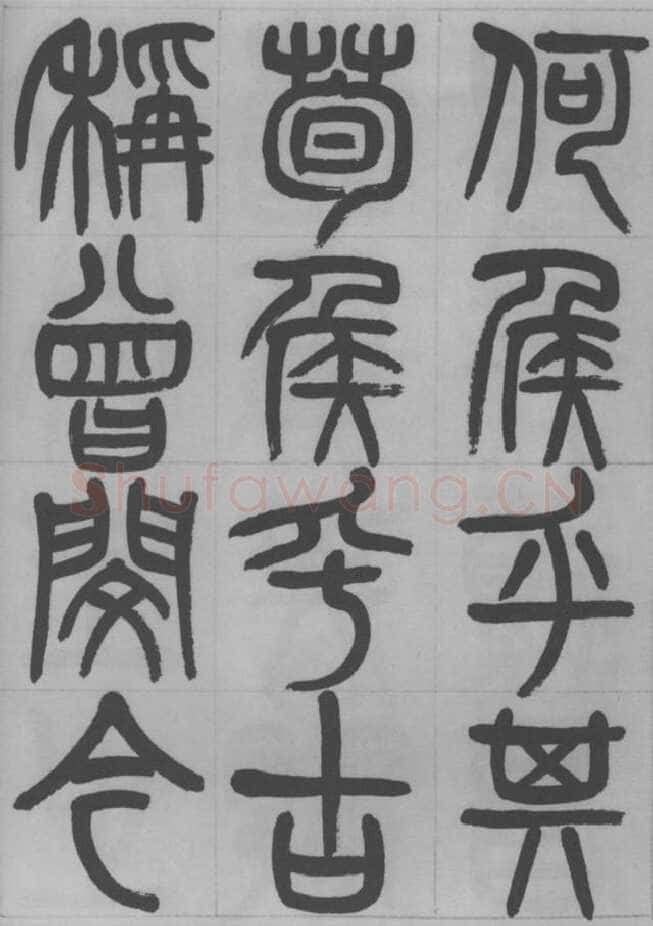 何侯乎其
荀侯乎古
稱曾閔今
Shufawang.CN